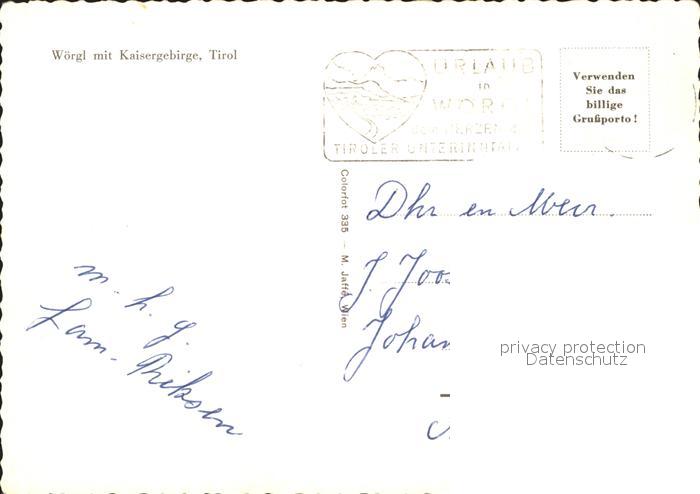 Wörgl mit Kaisergebirge, Tirol
URLAUB
in
WÖRGL
dem HERZEN d.
TIROLER UNTERINNTAL
Verwenden
Sie das
billige
Grußporto!
Colorfot 335 — M. Jaffé, Wien
Dhr en Mevr.
J. Joo
Johan
m. h. g.
Fam. Riksen
privacy protection
Datenschutz